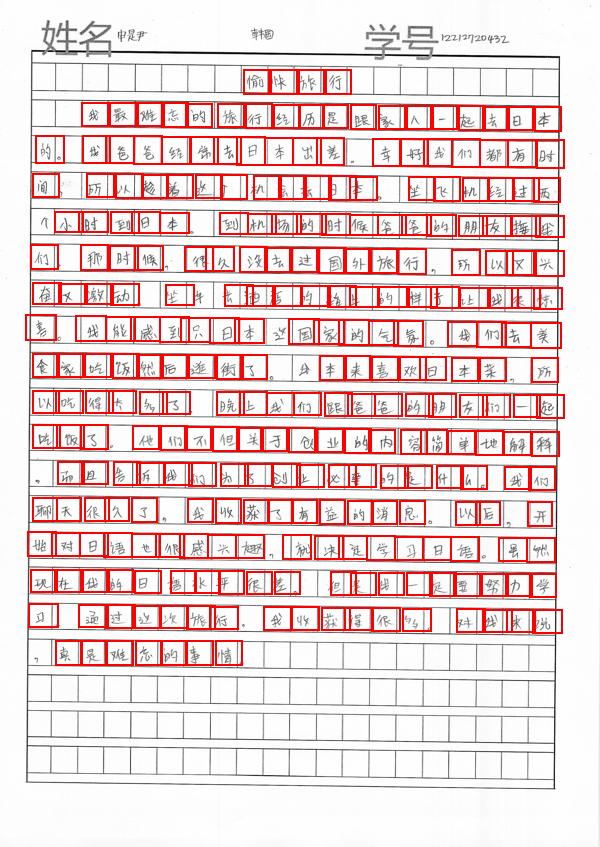 姓名 申是尹 韩国 学号 12212720432
愉快旅行
我最难忘的旅行经历是跟家人一起去日本
的。我爸爸经常去日本出差。幸好我们都有时
间，所以趁着这个机会去日本。坐飞机经过两
个小时到日本。到机场的时候爸爸的朋友接我
们。那时候，很久没去过国外旅行，所以又兴
奋又激动。坐车去酒店的路上的样子让我很惊
喜。我能感到只日本这国家的气氛。我们去美
食家吃饭然后逛街了。我本来喜欢日本菜，所
以吃得太多了。晚上我们跟爸爸的朋友们一起
吃饭了。他们不但关于创业的内容简单地解释
，而且告诉我们为了创业必要的是什么。我们
聊天很久了。我收获了有益的消息。以后，开
始对日语也很感兴趣。就决定学习日语。虽然
现在我的日语水平很差。但是我一定要努力学
习 通过这次旅行。我收获得很多 对我来说
，真是难忘的事情